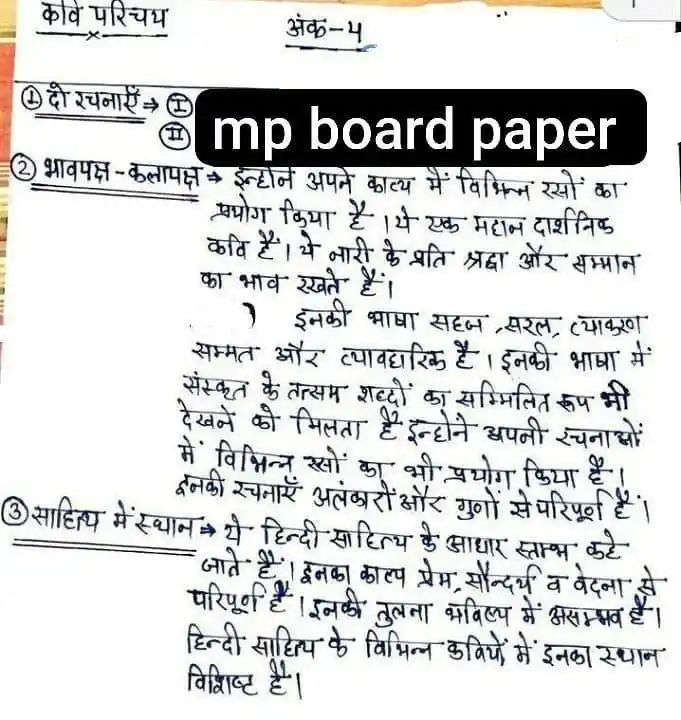 कवि परिचय
अंक-५
① दो रचनाएँ → Ⓘ
Ⓘ Ⓘ
mp board paper
② भावपक्ष - कलापक्ष → इन्होने अपने काव्य में विभिन्न रसों का
प्रयोग किया है । ये एक महान दार्शनिक
कवि है । ये नारी के प्रति श्रद्धा और सम्मान
का भाव रखते हैं ।
इनकी भाषा सहज, सरल, व्याकरण
सम्मत और व्यावहारिक है । इनकी भाषा में
संस्कृत के तत्सम शब्दों का सम्मिलित रूप भी
देखने को मिलता है इन्होने अपनी रचनाओं
में विभिन्न रसों का भी प्रयोग किया है ।
इनकी रचनाएँ अलंकारों और गुणों से परिपूर्ण हैं ।
③ साहित्य में स्थान → ये हिन्दी साहित्य के आधार स्तम्भ कहे
जाते हैं । इनका काव्य प्रेम, सौन्दर्य व वेदना से
परिपूर्ण है । इनकी तुलना भविष्य में असम्भव है ।
हिन्दी साहित्य के विभिन्न कवियों में इनका स्थान
विशिष्ट है ।